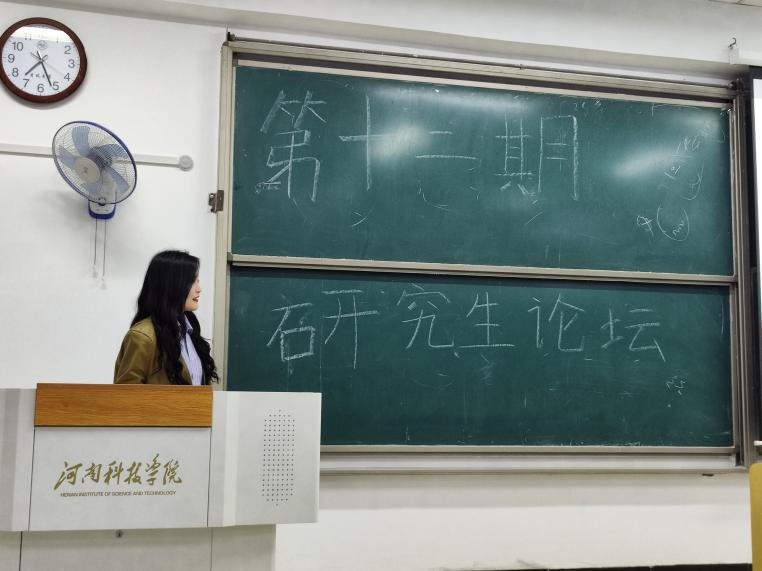 第十二期
研究生论坛
河南科技学院
HENAN INSTITUTE OF SCIENCE AND TECHNOLOGY